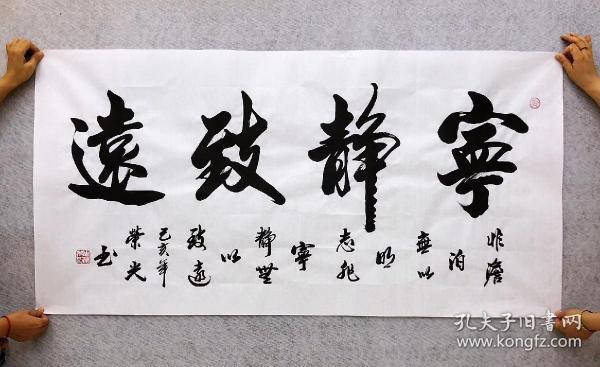 寧静致遠
非澹
泊
無以
明
志非
寧
静無
以
致遠
己亥年
榮光
书
孔夫子旧书网
www.kongfz.com